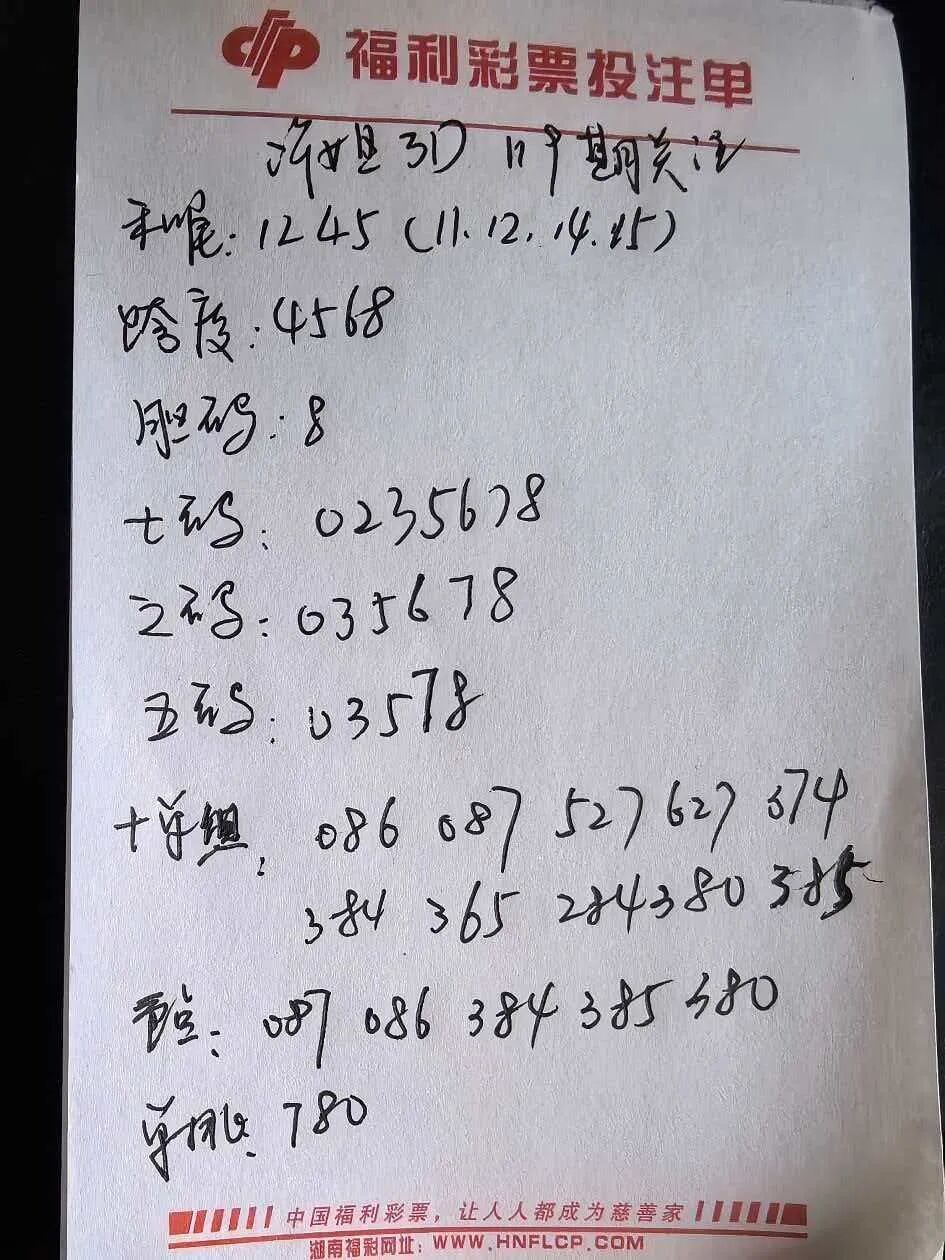 福利彩票投注单
姐3D 119期关注
和尾:1245(11.12.14.15)
跨度:4568
胆码:8
七码:0235678
六码:035678
五码:03578
十单组:086 087 527 627 374
384 365 284 380 385
重点:087 086 384 385 380
单挑:780
中国福利彩票,让人人都成为慈善家
湖南福彩网址:WWW.HNFLCP.COM